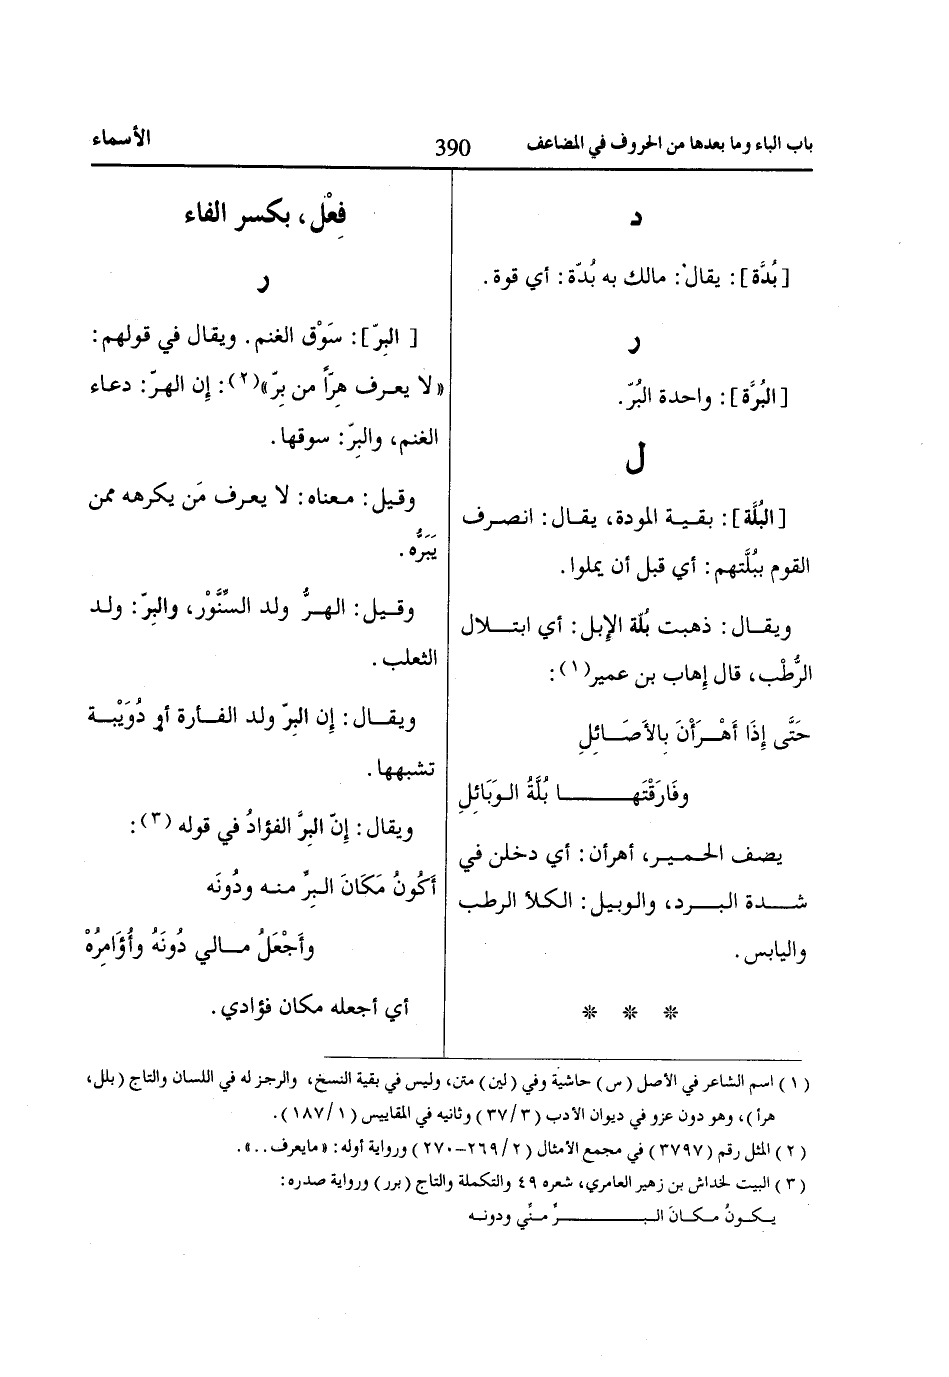 باب الباء وما بعدها من الحروف في المضاعف
390
الأسماء
د
[بُدَّة]: يقال: مالك به بُدّة: أي قوة.
ر
[البُرَّة]: واحدة البُرّ.
ل
[البُلَّة]: بقية المودة، يقال: انصرف
القوم ببُلَّتهم: أي قبل أن يملوا.
ويقال: ذهبت بُلّة الإبل: أي ابتلال
الرُّطْب، قال إهاب بن عمير(١):
حَتَّى إِذَا أَهْرَأْنَ بِالأَصَائِلِ
وفَارَقْتَها بُلَّةُ الوَبَائِلِ
يصف الحمير، أهرأن: أي دخلن في
شدة البرد، والوبيل: الكلأ الرطب
واليابس.
* * *
فِعْل، بكسر الفاء
ر
[البِرّ]: سَوْق الغنم. ويقال في قولهم:
«لا يعرف هِرّاً من بِرّ»(٢): إن الهرّ: دعاء
الغنم، والبِرّ: سوقها.
وقيل: معناه: لا يعرف مَن يكرهه ممن
يَبَرُّه.
وقيل: الهرُّ ولد السِّنَّوْر، والبِرّ: ولد
الثعلب.
ويقال: إن البِرّ ولد الفأرة أو دُوَيْبة
تشبهها.
ويقال: إنّ البِرَّ الفؤادُ في قوله(٣):
أَكُونُ مَكَانَ البِرِّ منه ودُونَه
وأَجْعَلُ مالي دُونَهُ وأُؤَامِرُهْ
أي أجعله مكان فؤادي.
(١) اسم الشاعر في الأصل (س) حاشية وفي (لين) متن، وليس في بقية النسخ، والرجز له في اللسان والتاج (بلل،
هرأ)، وهو دون عزو في ديوان الأدب (٣/ ٣٧) وثانيه في المقاييس (١/ ١٨٧).
(٢) المثل رقم (٣٧٩٧) في مجمع الأمثال (٢/ ٢٦٩-٢٧٠) ورواية أوله: «مايعرف..».
(٣) البيت لخداش بن زهير العامري، شعره ٤٩ والتكملة والتاج (برر) ورواية صدره:
يكونُ مكانَ البرِّ منِّي ودونه